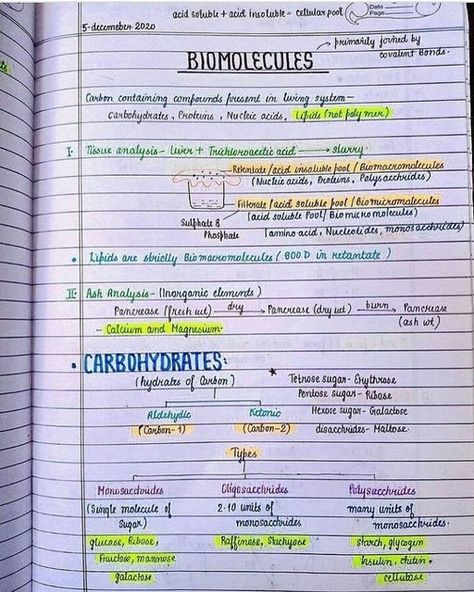 acid soluble + acid insoluble = cellular pool
Date
Page
5-decemeber 2020
primarily joined by
covalent Bonds.
BIOMOLECULES
Carbon containing compounds present in living system-
carbohydrates, Proteins, Nucleic acids, Lipids (not polymer)
I. Tissue analysis - Liver + Trichloroacetic acid → slurry
Retentate/acid insoluble pool/Biomacromolecules
(Nucleic acids, Proteins, Polysacchrides)
Filterate/acid soluble pool/Biomicromolecules
(acid soluble Pool/Biomicromolecules)
(amino acid, Nucleotides, monosacchrides)
Sulphate &
Phosphate
• Lipids are strictly Biomacromolecules (800 D in retantate)
II. Ash Analysis - (Inorganic elements)
Pancrease (fresh wt) dry → Pancrease (dry wt) burn → Pancrease
(ash wt)
- Calcium and Magnesium.
• CARBOHYDRATES:
(hydrates of Carbon)
★ Tetrose sugar - Erythrose
Pentose sugar - Ribose
Hexose sugar - Galactose
disacchrides - Maltose.
Aldehydic Ketonic
(Carbon-1) (Carbon-2)
Types
Monosacchrides Oligosacchrides Polysacchrides
(Single molecule of 2-10 units of many units of
sugar) monosacchrides monosacchrides.
glucose, Ribose, Raffinose, Stachyose starch, glycogen
Fructose, mannose Insulin, chitin.
galactose cellulose